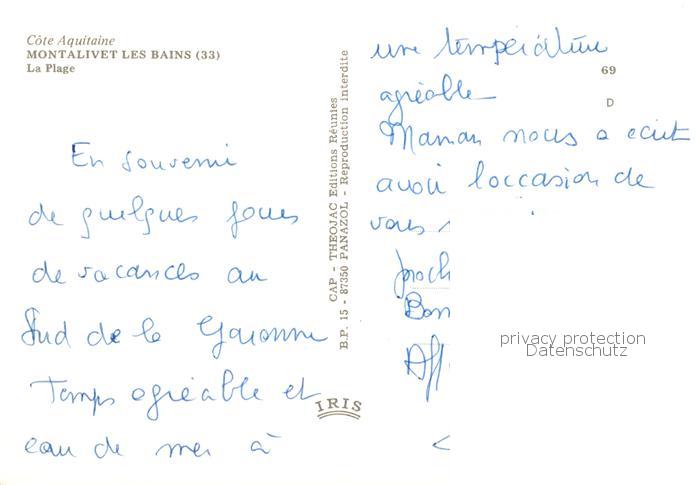 Côte Aquitaine
MONTALIVET LES BAINS (33)
La Plage
En souvenir
de quelques jours
de vacances au
Sud de la Garonne
Temps agréable et
eau de mer à
CAP - THEOJAC Editions Réunies
B.P. 15 - 87350 PANAZOL - Reproduction interdite
IRIS
une température
69
agréable
D
Maman nous a écrit
avoir l'occasion de
vous
proch
Bon
Aff
privacy protection
Datenschutz